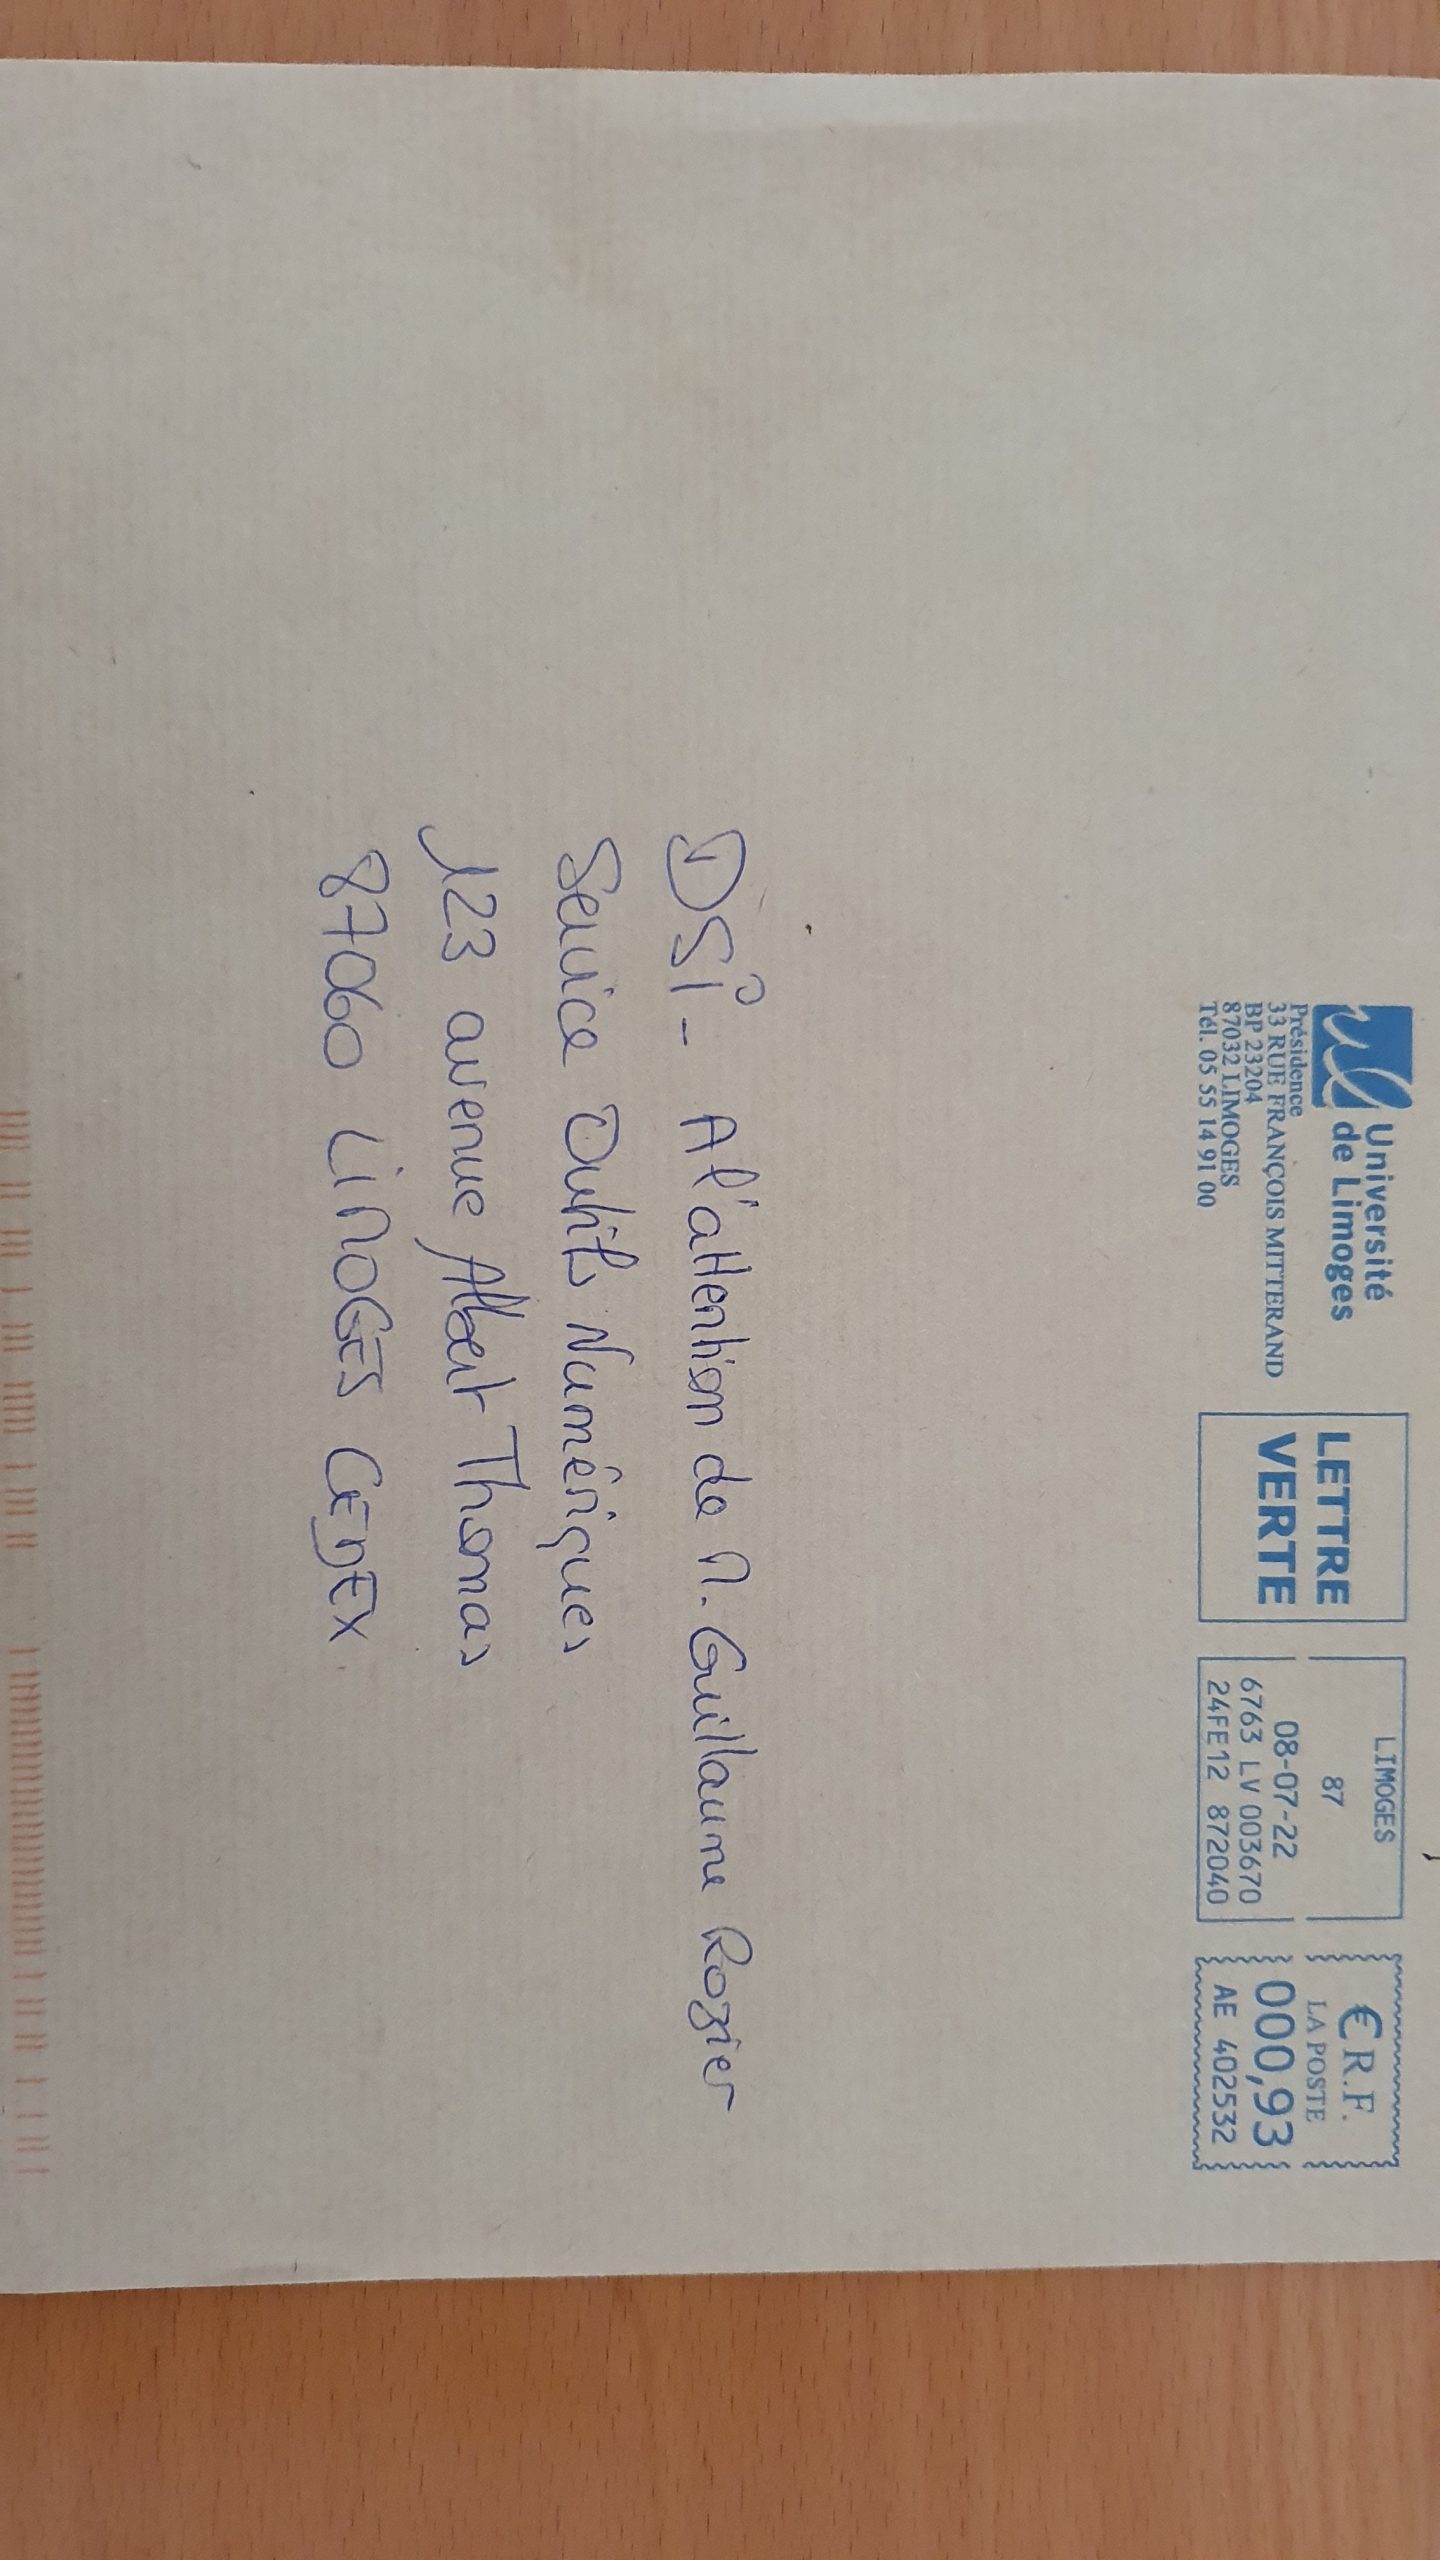 Université
de Limoges
Présidence
33 RUE FRANÇOIS MITTERAND
BP 23204
87032 LIMOGES
Tél. 05 55 14 91 00
LETTRE
VERTE
LIMOGES
87
08-07-22
6763 LV 003670
24FE12 872040
€ R.F.
LA POSTE
000,93
AE 402532
DSi - A l'attention de M. Guillaume Rozier
Service Outils Numériques
123 avenue Albert Thomas
87060 LiMOGES CEDEX